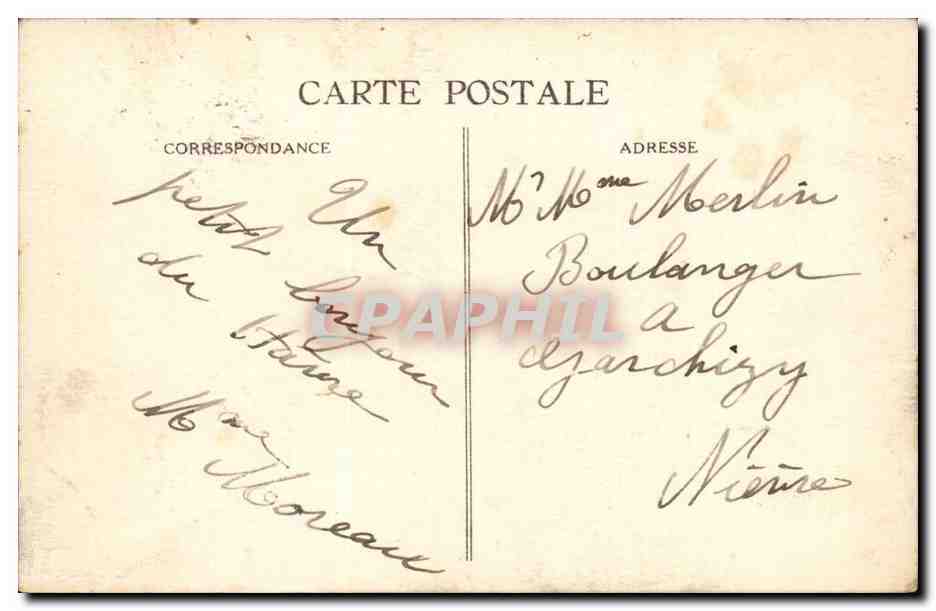 CARTE POSTALE
CORRESPONDANCE
Un
petit bonjour
du
Mme
Moreau
ADRESSE
Mr Mme Merlin
Boulanger
a
Garchizy
Nièvre
CPAPHIL